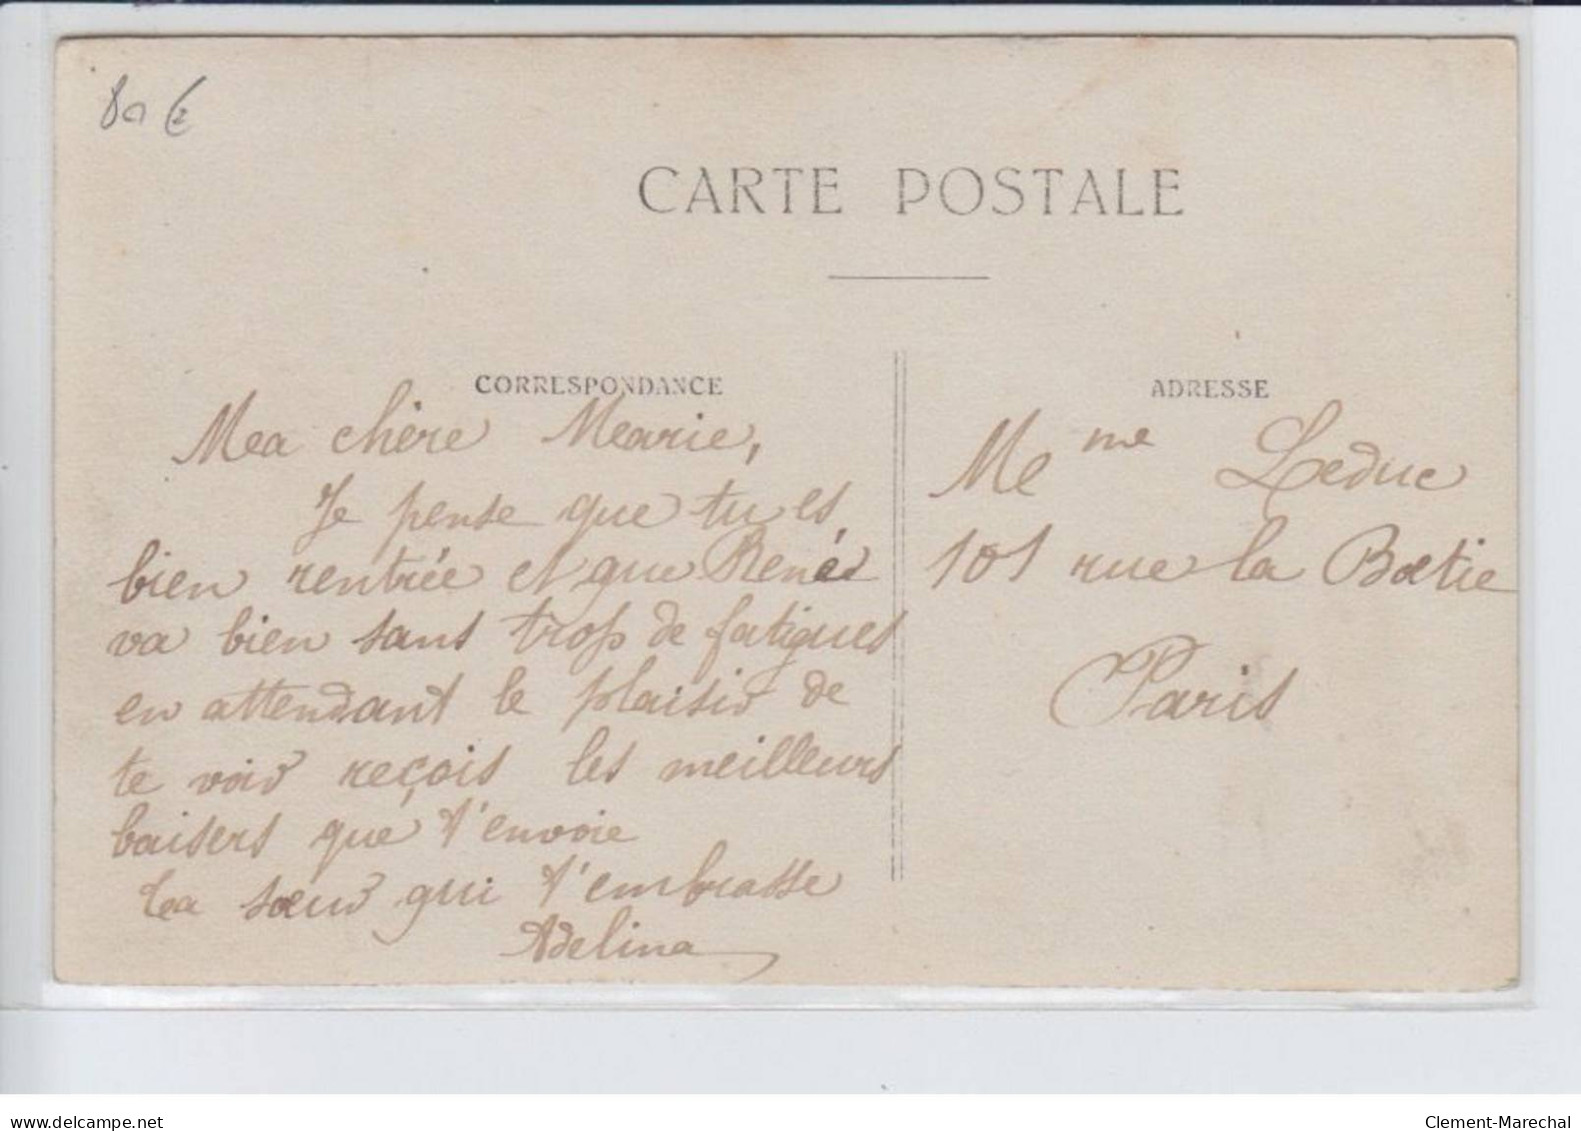 80 €
CARTE POSTALE
CORRESPONDANCE
Ma chère Marie,
Je pense que tu es
bien rentrée et que René
va bien sans trop de fatigues
en attendant le plaisir de
te voir reçois les meilleurs
baisers que t'envoie
ta sœur qui t'embrasse
Adelina
ADRESSE
Mme Leduc
101 rue la Boetie
Paris
www.delcampe.net
Clement-Marechal